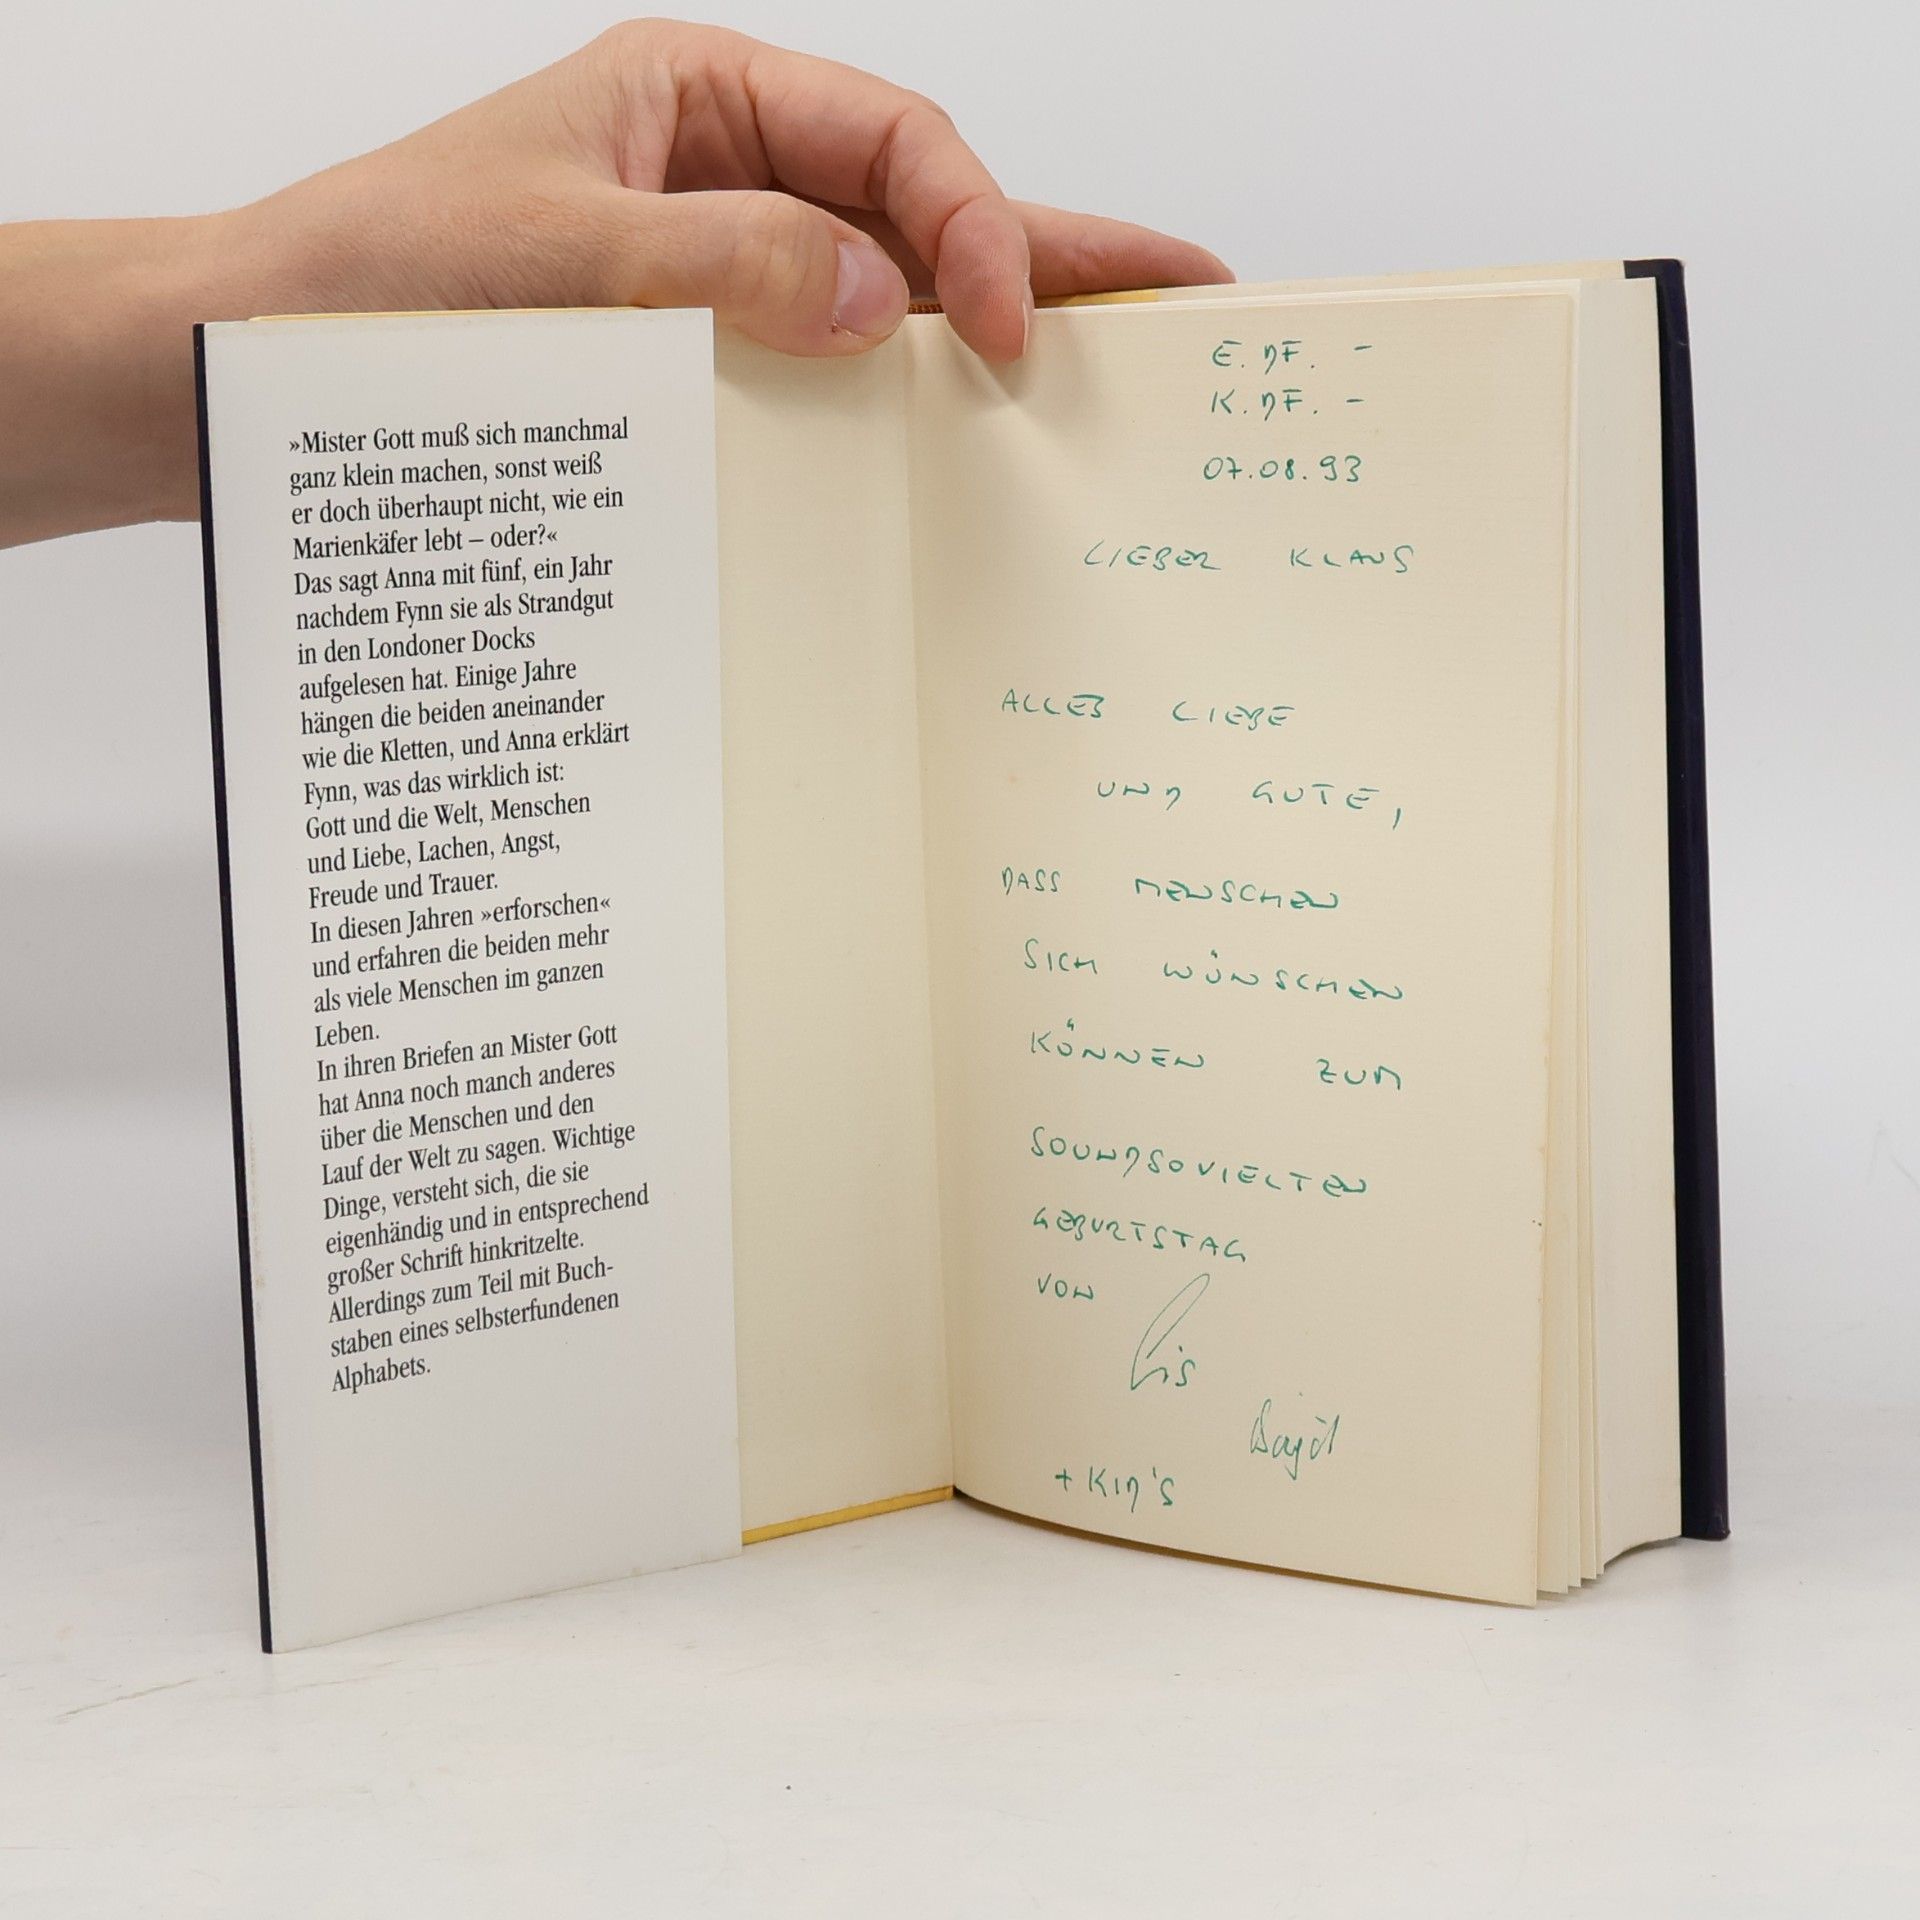 »Mister Gott muß sich manchmal
ganz klein machen, sonst weiß
er doch überhaupt nicht, wie ein
Marienkäfer lebt – oder?«
Das sagt Anna mit fünf, ein Jahr
nachdem Fynn sie als Strandgut
in den Londoner Docks
aufgelesen hat. Einige Jahre
hängen die beiden aneinander
wie die Kletten, und Anna erklärt
Fynn, was das wirklich ist:
Gott und die Welt, Menschen
und Liebe, Lachen, Angst,
Freude und Trauer.
In diesen Jahren »erforschen«
und erfahren die beiden mehr
als viele Menschen im ganzen
Leben.
In ihren Briefen an Mister Gott
hat Anna noch manch anderes
über die Menschen und den
Lauf der Welt zu sagen. Wichtige
Dinge, versteht sich, die sie
eigenhändig und in entsprechend
großer Schrift hinkritzelte.
Allerdings zum Teil mit Buch-
staben eines selbsterfundenen
Alphabets.
E. DF. –
K. DF. –
07.08.93
LIEBER KLAUS
ALLES LIEBE
UND GUTE,
DASS MENSCHEN
SICH WÜNSCHEN
KÖNNEN ZUM
SOUNDSOVIELTEN
GEBURTSTAG
VON
+ KID'S